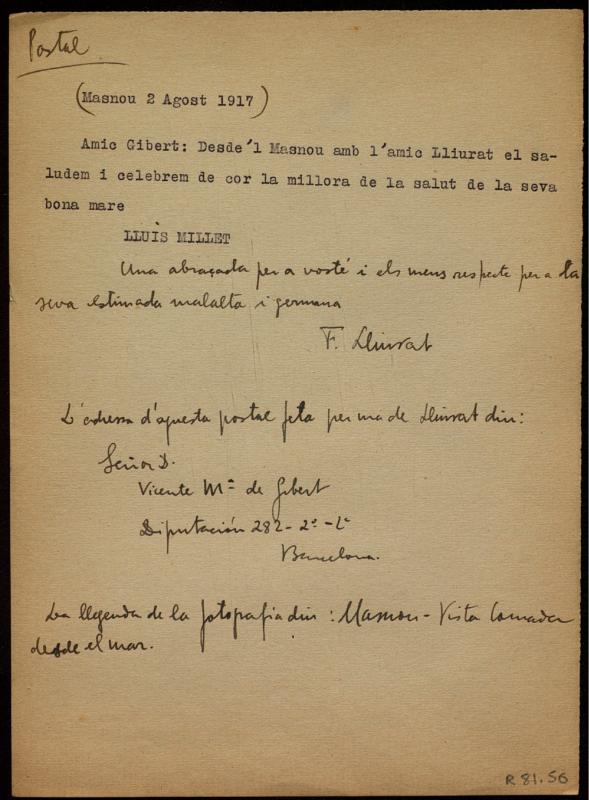 Postal
(Masnou 2 Agost 1917)
Amic Gibert: Desde'l Masnou amb l'amic Lliurat el sa-
ludem i celebrem de cor la millora de la salut de la seva
bona mare
LLUIS MILLET
Una abraçada per a vosté i els meus respecte per a la
seva estimada malalta i germana
F. Lliurat
L'adressa d'aquesta postal feta per ma de Lliurat diu:
Señor D.
Vicente Mª de Gibert
Diputación 282-2º-1ª
Barcelona.
La llegenda de la fotografia diu: Masnou - Vista tomada
desde el mar.
R 81.56